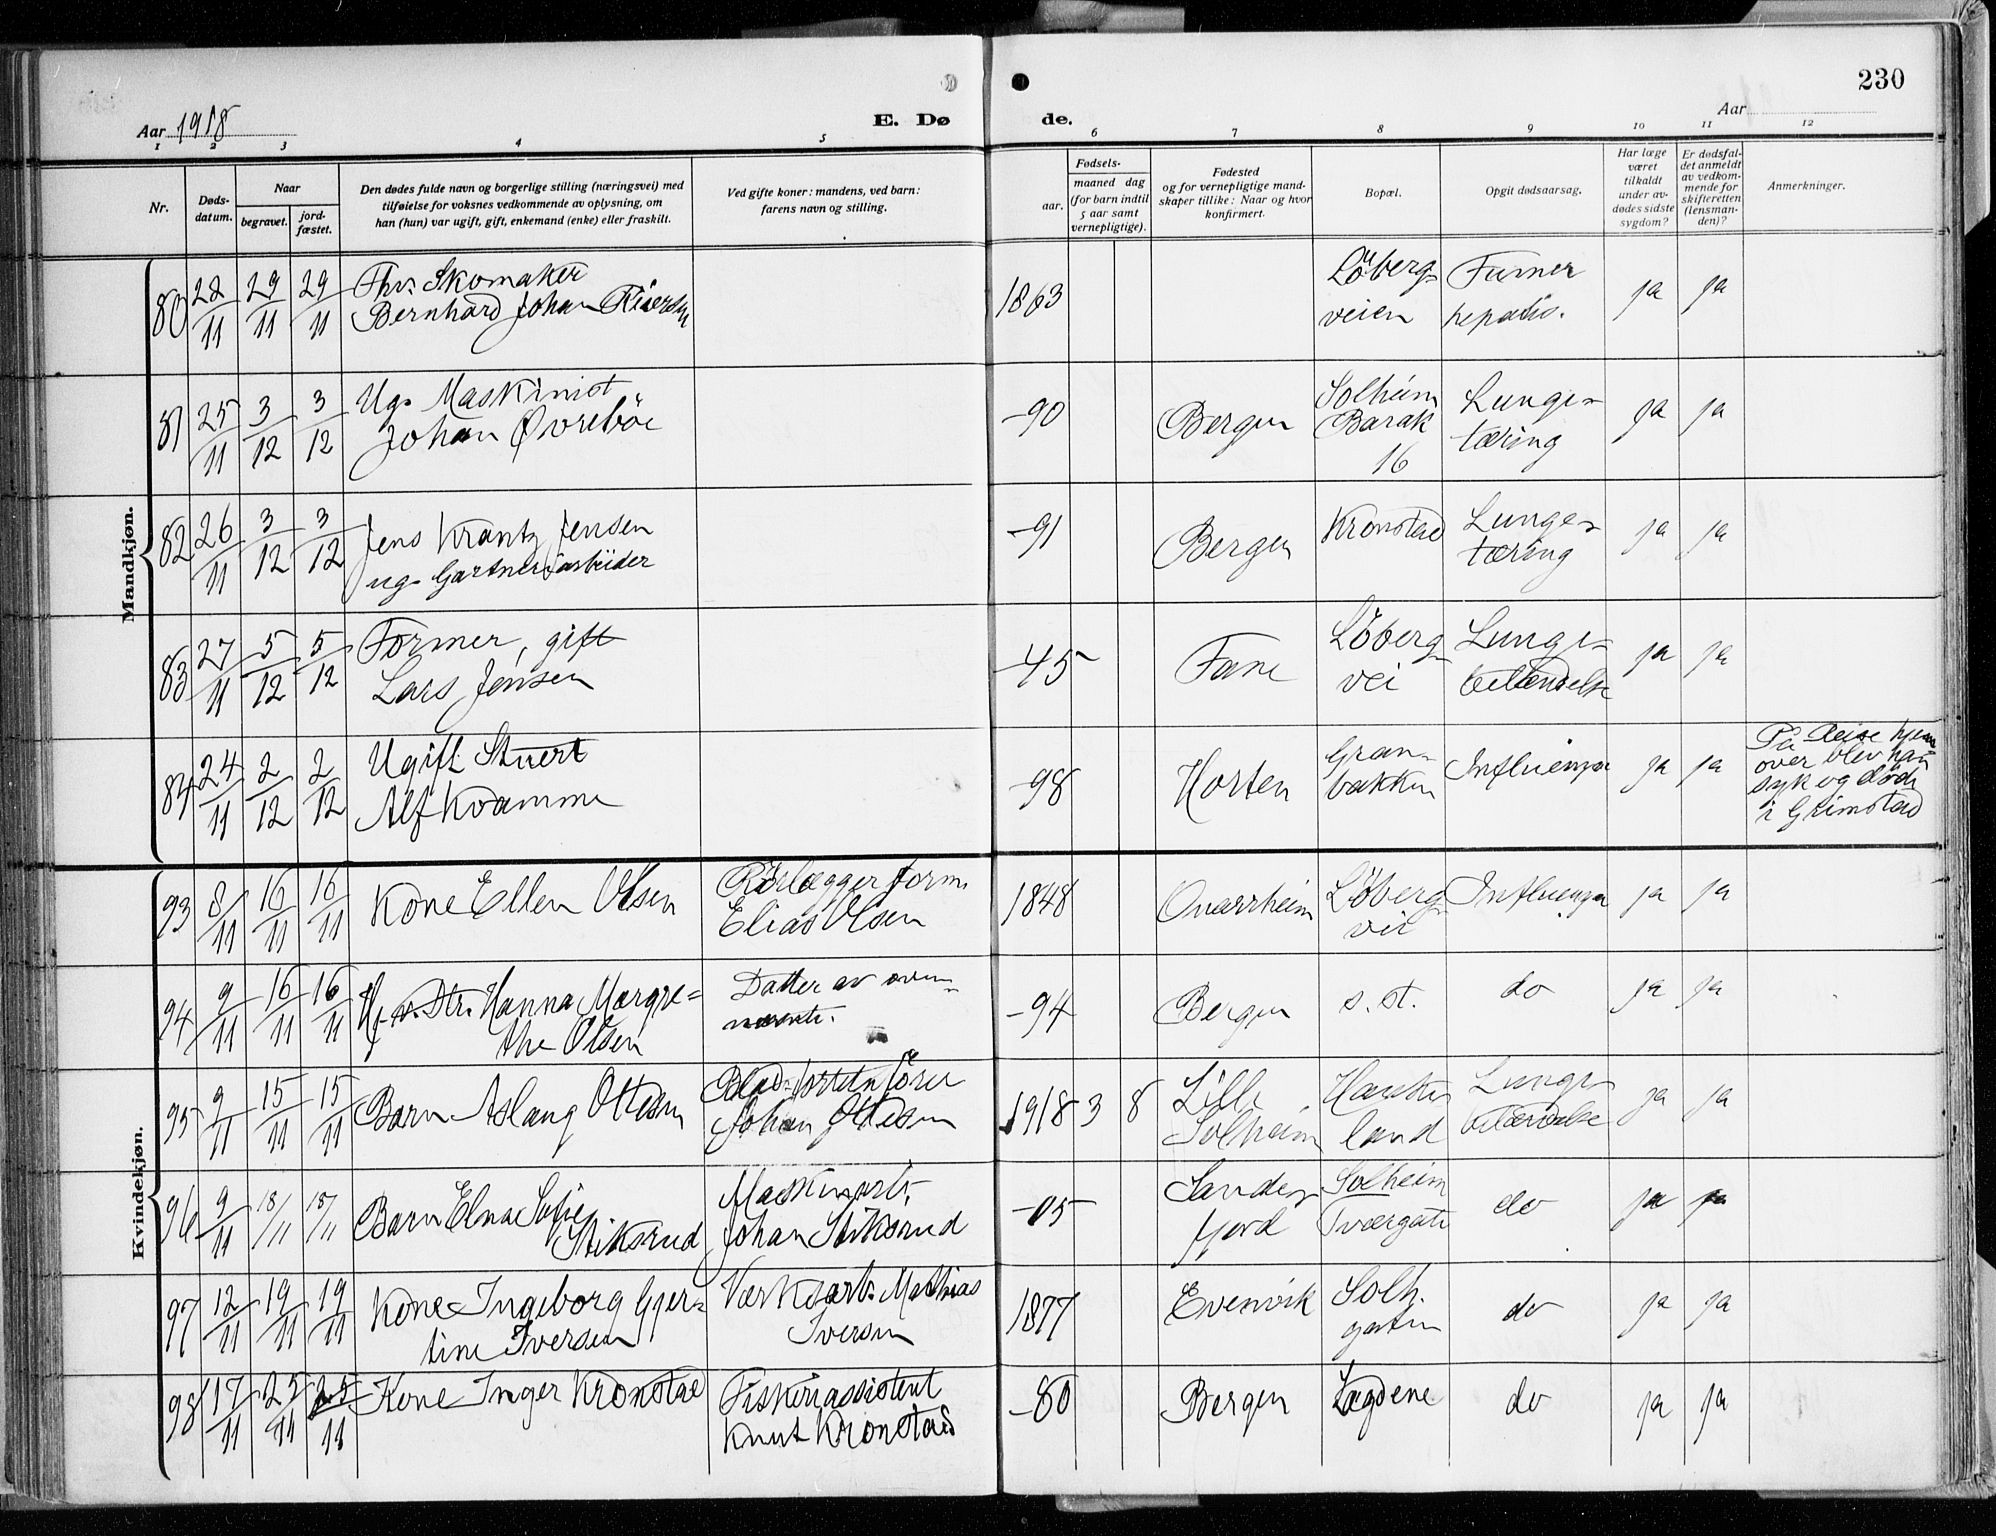 230
Aar 1918
E. Dø
de.
Aar
1 2 3 4 5 6 7 8 9 10 11 12
Nr.
Døds-
datum.
Naar
begravet.
jord-
fæstet.
Den dødes fulde navn og borgerlige stilling (næringsvei) med
tilføielse for voksnes vedkommende av oplysning, om
han (hun) var ugift, gift, enkemand (enke) eller fraskilt.
Ved gifte koner: mandens, ved barn:
farens navn og stilling.
Fødsels-
aar.
maaned dag
(for barn indtil
5 aar samt
vernepligtige).
Fødested
og for vernepligtige mand-
skaper tillike: Naar og hvor
konfirmert.
Bopæl.
Opgit dødsaarsag.
Har læge
været
tilkaldt
under av-
dødes sidste
sygdom?
Er dødsfal-
det anmeldt
av vedkom-
mende for
skifteretten
(lensman-
den)?
Anmerkninger.
Mandkjøn.
80 22/11 29/11 29/11 Skomaker
Bernhard Johan
1863
Löberg-
veien
hepatis.
ja ja
81 25/11 3/12 3/12 Ug. Maskinist
Johan Øvreböe
-90 Bergen
Solheim
Barak
16
Lunge-
tæring
ja ja
82 26/11 3/12 3/12 Jens Krantz Jensen
ug. Gartneriarbeider
-91 Bergen Kronstad
Lunge-
tæring
ja ja
83 27/11 5/12 5/12 Former, gift
Lars Jensen
-45 Fane
Löberg-
vei
Lunge-
betændelse
ja ja
84 24/11 2/12 2/12 Ugift Stuert
Alf Kvamme
-98 Horten
Gran-
bakken
Influenza
ja ja
På Reise hjem-
over blev han
syk og döde
i Grimstad
Kvindekjøn.
93 8/11 16/11 16/11 Kone Ellen Olsen
Rörlægger form.
Elias Olsen
1848 Qvarrheim
Löberg-
vei
Influenza
ja ja
94 9/11 16/11 16/11 Hanna Margre=
the Olsen
Datter av oven-
nævnte.
-94 Bergen s. st. do ja ja
95 9/11 15/11 15/11 Barn Aslaug Ottesen
Johan Ottesen
1918 3 8
Lille
Solheim
Haukeland
Lunge-
betændelse
ja ja
96 9/11 18/11 18/11 Barn Elna Sofie
Stiksrud
Maskinarb.
Johan Stiksrud
-05
Sande-
fjord
Solheim
Tværgate
do ja ja
97 12/11 19/11 19/11 Kone Ingeborg Gjer=
tine Iversen
Værksarb. Mathias
Iversen
1877 Evenvik
Solh.
gaten
do ja ja
98 17/11 25/11 25/11 Kone Inger Kronstad
Fiskeriassistent
Knut Kronstad
-80 Bergen Lægdene do ja ja